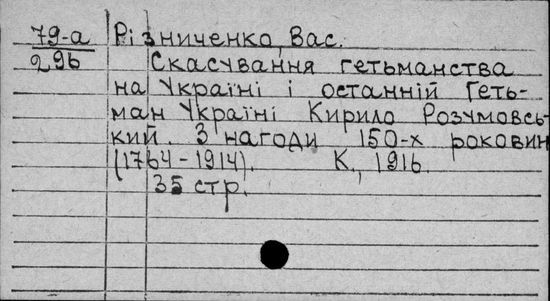 79-а Різниченко, Вас.
296 Скасування гетьманства
на Україні і останній Геть-
ман Україні Кирило Розумовсь-
кий. З нагоди 150-х роковин
(1764-1914). К., 1916.
35 стр.